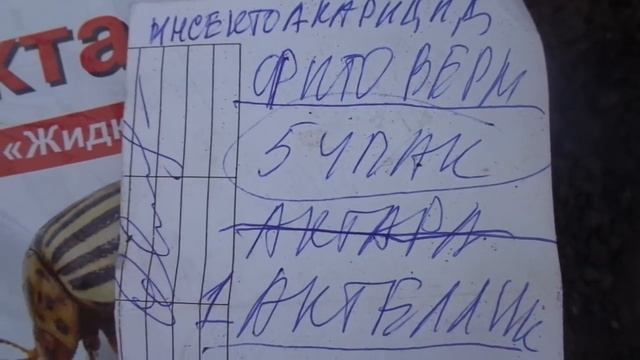 ИНСЕКТОАКАРИЦИД
ФИТОВЕРМ
5 УПАК
АКТАРА
1 АКТЕЛИК
кта
«Жидк